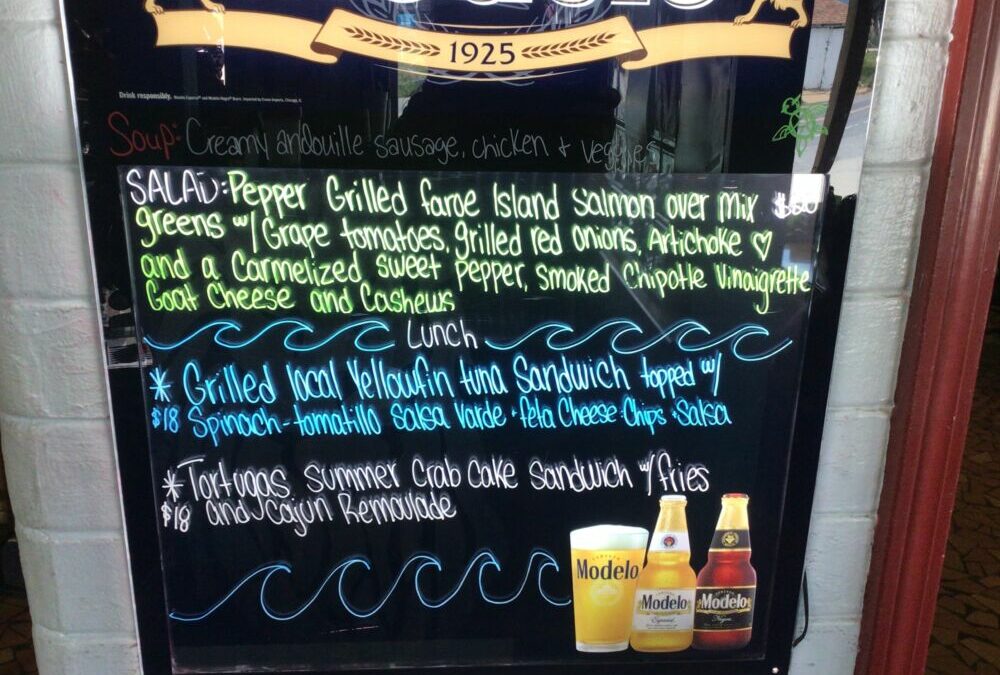 1925
Drink responsibly.
Soup: Creamy andouille sausage, chicken + veggies
SALAD: Pepper Grilled faroe Island Salmon over mix
greens w/ Grape tomatoes, grilled red onions, Artichoke ♡
and a Carmelized sweet Pepper, Smoked Chipotle Vinaigrette
Goat Cheese and Cashews
Lunch
* Grilled local Yellowfin tuna Sandwich topped w/
$18 Spinach - tomatillo Salsa Varde • feta Cheese • Chips • Salsa
* Tortugas Summer Crab Cake Sandwich w/ fries
$18 and Cajun Remoulade
Modelo
Modelo
Especial
Modelo
Negra